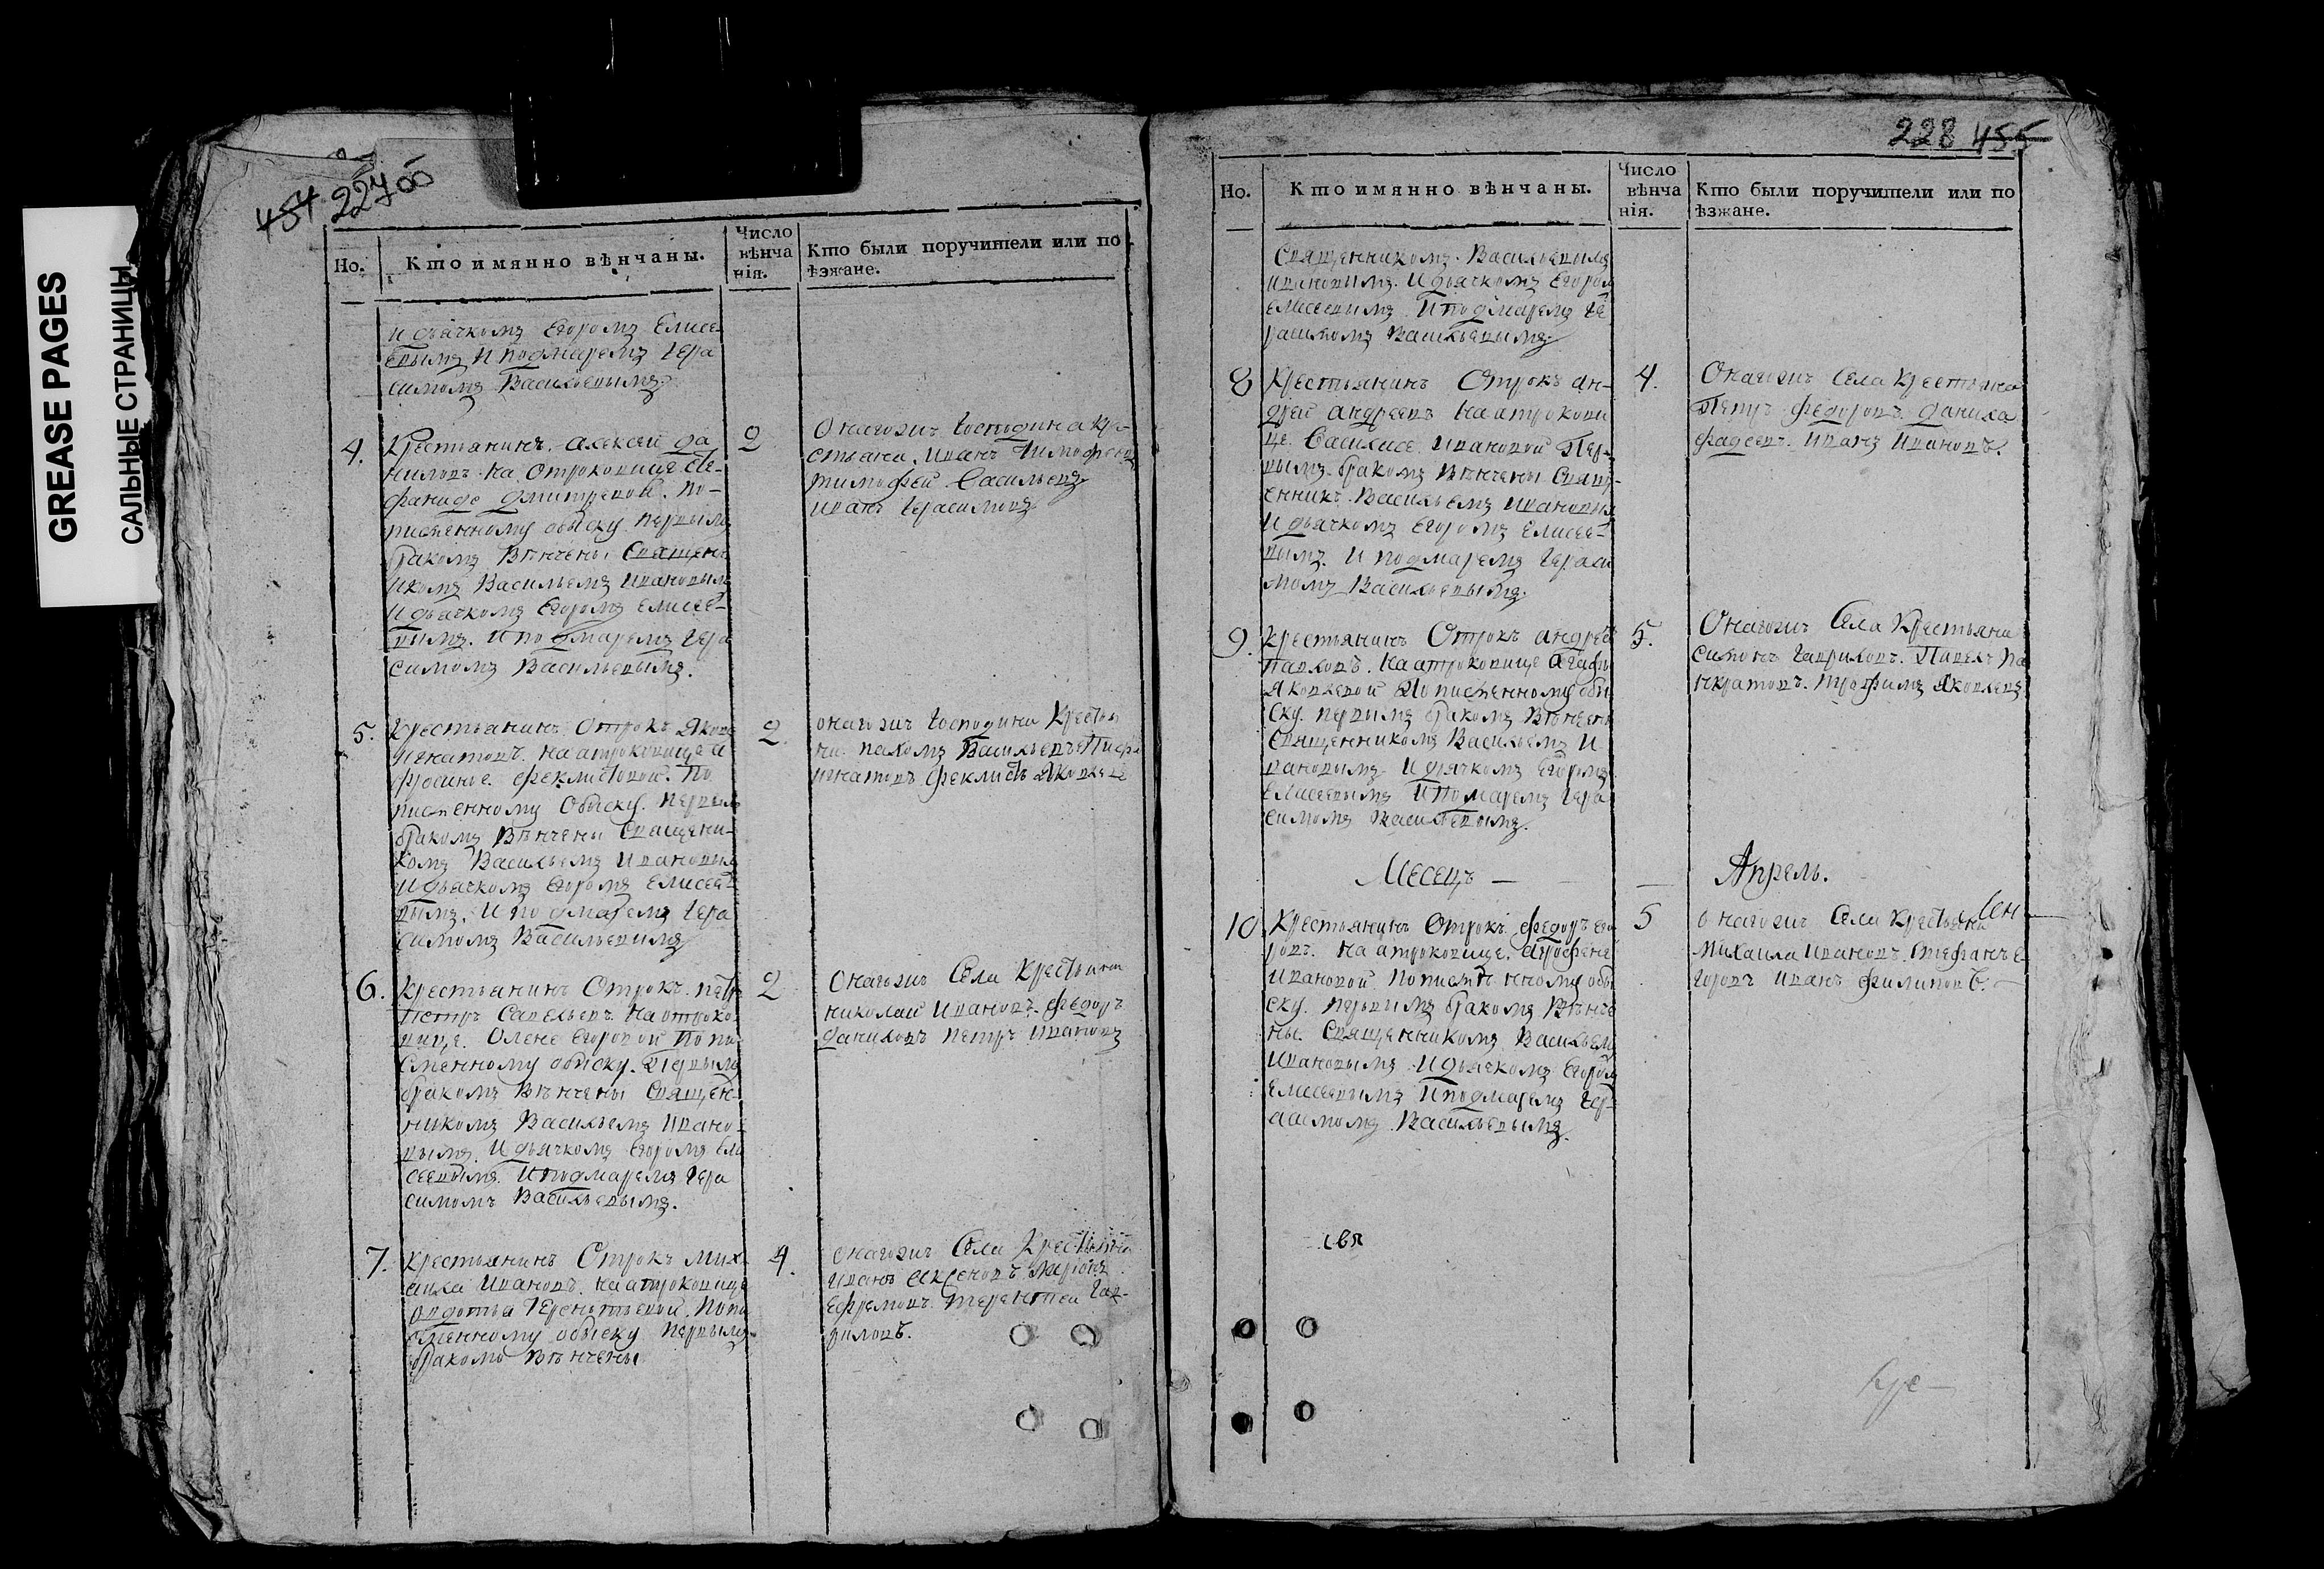 GREASE PAGES
САЛЬНЫЕ СТРАНИЦЫ
454 227 об
Но.
Кто имянно вѣнчаны.
Число
вѣнча
нія.
Кто были поручители или по
ѣзжане.
И дьачкомъ Егоромъ Елисе-
евымъ И подмаремъ Гера
симомъ Васильевымъ.
4.
Крестьянинъ. алексеи да
ниловъ на Отроковице Сте-
фаниде дмитревой. по-
писменному обыску первымъ
бракомъ Вѣнчены Священъ
икомъ Васильемъ Ивановым
И дьачкомъ Егоромъ Елисее-
вымъ. И подмаремъ Гера
симомъ Васильевымъ.
2
Онагожъ Господина кре-
стьяна. Иванъ Тимофеевъ
тимофей Васильевъ
иванъ Герасимовъ
5.
Крестьянинъ Отрокъ Яковъ
Игнатовъ. на атроковице а
фросинье феклистовой. По
писменному Обыску. первым
бракомъ Вѣнчены Священи-
комъ Васильемъ Ивановым
И дьачкомъ Егоромъ Елисее-
вымъ. И подмаремъ Гера
симомъ Васильевымъ
2.
онагожъ Господина Крестья
ни пахомъ Васильевъ
игнатовъ феклистъ Яковлевъ
6.
Крестьянинъ Отрокъ. петр
Петръ Савельевъ. На отроко
вице. Олене Егоровой По пи
сменному обыску. Первымъ
бракомъ Вѣнчены Священ-
никомъ Васильемъ Ивано-
вымъ. И дьачкомъ Егоромъ Ели
сеевымъ. И подмаремъ Гера
симомъ Васильевымъ.
2
Онагожъ Села Крестьяни
николай Ивановъ. федоръ
даниловъ петръ Ивановъ
7.
Крестьянинъ Отрокъ Мих
аила Ивановъ. на атроковице
авдотьа Терентьевой. По пи
сменному обыску первымъ
бракомъ Вѣнчены
4.
онагожъ Села Крестьяни
Иванъ Аксеновъ Миронъ
Ефремовъ. терентей Гав-
риловъ.
228 455
Но.
Кто имянно вѣнчаны.
Число
вѣнча
нія.
Кто были поручители или по
ѣзжане.
Священникомъ. Васильевымъ
Ивановымъ. И дьачкомъ Егором
Елисеевымъ И подмаремъ Ге
расимомъ Васильевымъ.
8
Крестьянинъ Отрокъ ан-
дрей андреевъ на атрокови
це. Василисе Ивановой Пер-
вымъ. бракомъ Вѣнчены Свящ-
енникъ. Васильемъ Ивановым
И дьачкомъ Егоромъ Елисее-
вымъ. И подмаремъ Гераси
момъ Васильевымъ.
4.
Онагожъ Села Крестьяна
Петръ федоровъ. данила
фадеевъ. Иванъ Ивановъ.
9.
Крестьянинъ Отрокъ андрей
Павловъ. на атроковице Агафье
Яковлевой По писменному обы
ску. первымъ бракомъ Вѣнчены
Священникомъ Васильемъ И
вановымъ. И дьячкомъ Егоромъ
Елисеевымъ И Помаремъ Гера
симомъ Васильевымъ.
5.
Онагожъ Села Крестьяни
Симонъ Гавриловъ. Павелъ па
нкратовъ. трофимъ Яковлевъ
Месецъ —
Апрель.
10
Крестьянинъ Отрокъ федоръ его
ровъ. на атроковице. Аграфене
Ивановой По писменному обы
ску. первымъ бракомъ Вѣнче
ны. Священникомъ Васильемъ
Ивановымъ И дьячкомъ Егором
Елисеевымъ И подмаремъ Гер-
асимомъ Васильевымъ.
5
онагожъ Села Крестьяни
Михаила Ивановъ. Стефанъ е-
горовъ Иванъ филиповъ.
свя